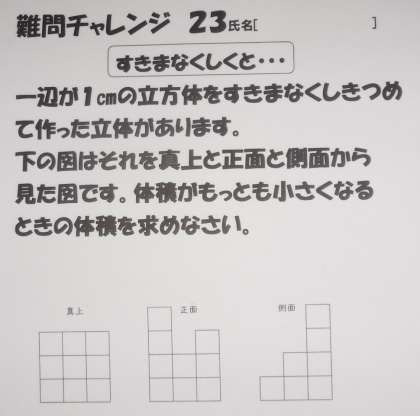 難問チャレンジ 23氏名[ ]
すきまなくしくと・・・
一辺が1㎝の立方体をすきまなくしきつめ
て作った立体があります。
下の図はそれを真上と正面と側面から
見た図です。体積がもっとも小さくなる
ときの体積を求めなさい。
真上 正面 側面